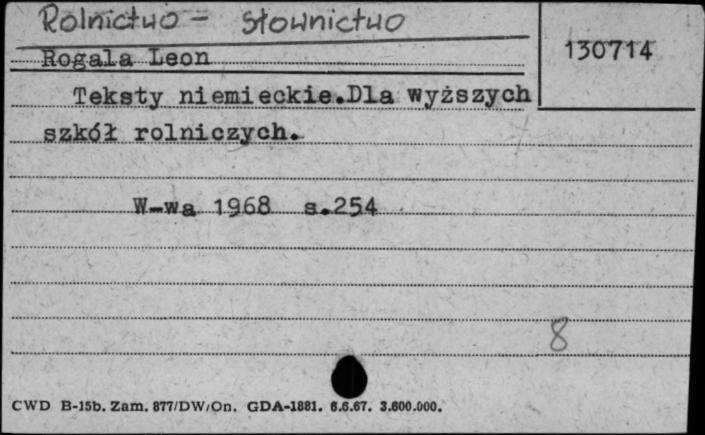 Rolnictwo - słownictwo
130714
Rogala Leon
Teksty niemieckie.Dla wyższych
szkół rolniczych.
W-wa 1968 s.254
8
CWD B-15b. Zam. 877/DW/On. GDA-1881. 6.6.67. 3.600.000.